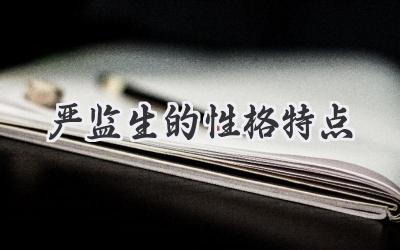 严监生的性格特点